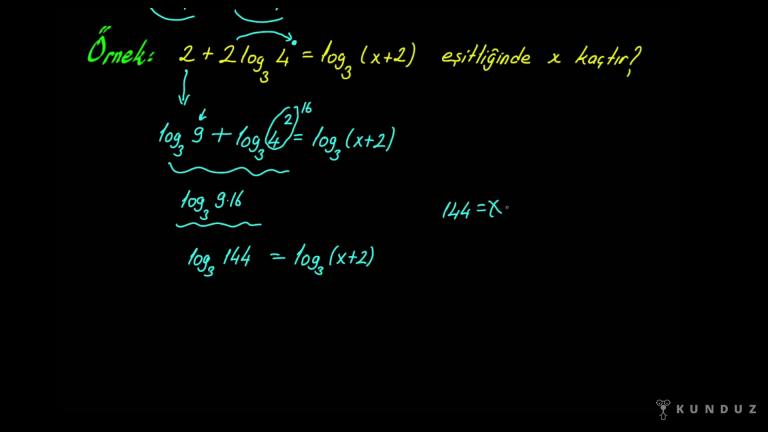 Örnek: 2 + 2 log₃ 4 = log₃ (x+2) eşitliğinde x kaçtır?
log₃ 9 + log₃ 4² = log₃ (x+2) 16
log₃ 9·16
144 = x
log₃ 144 = log₃ (x+2)
KUNDUZ